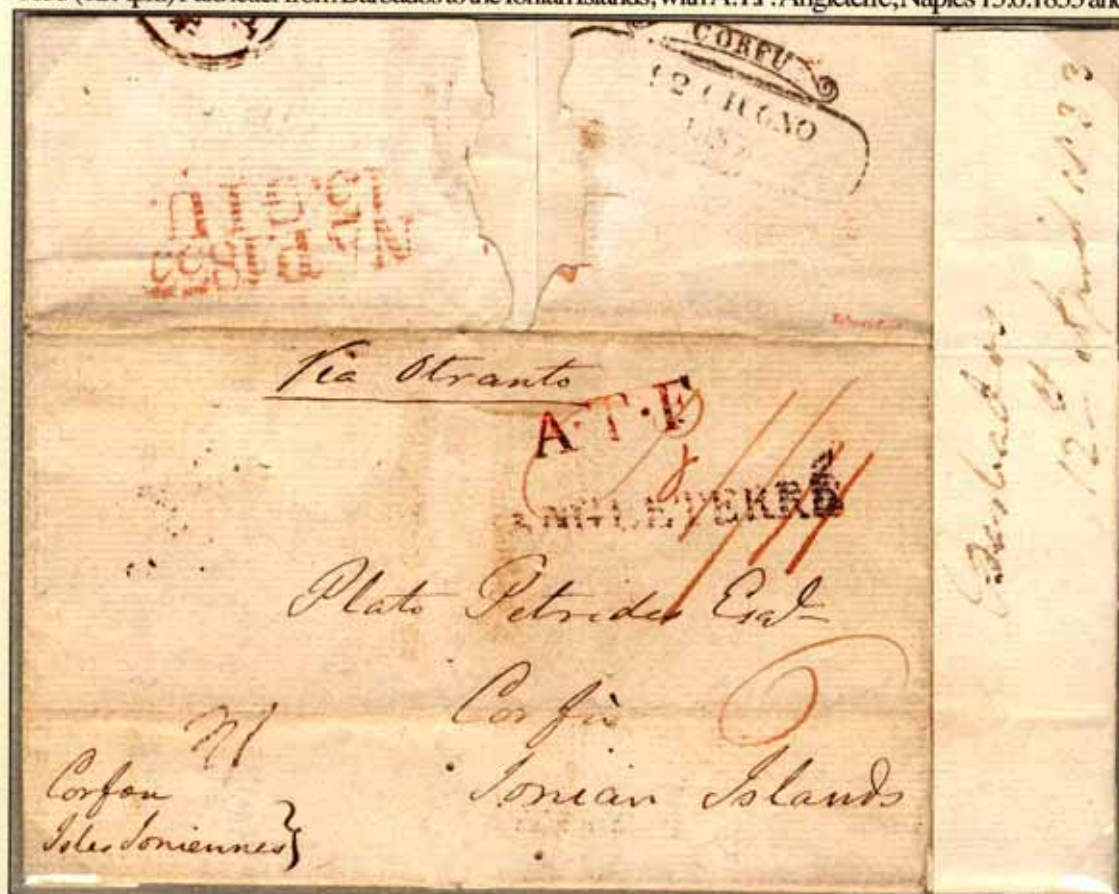 Paid letter from Barbados to the Ionian Islands, with A.T.F. Angleterre, Naples
CORFU
12 GIUGNO
Nap 1833
13. GIU
Via Otranto
A·T·F
ANGLETERRE
Plato Petrides Esqr
Corfù
Ionian Islands
Corfou
Isles Ioniennes}
Barbados
12th April 1833